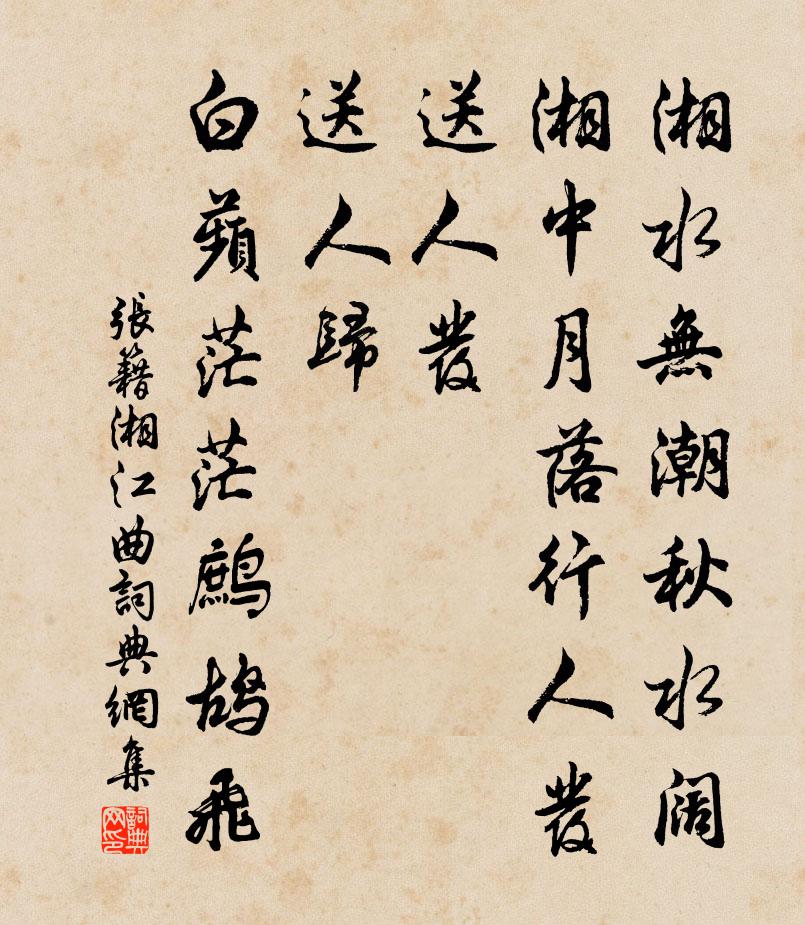 湘水無潮秋水闊
湘中月落行人發
送人發
送人歸
白蘋茫茫鷓鴣飛
張籍湘江曲詞典網集
詞典网印